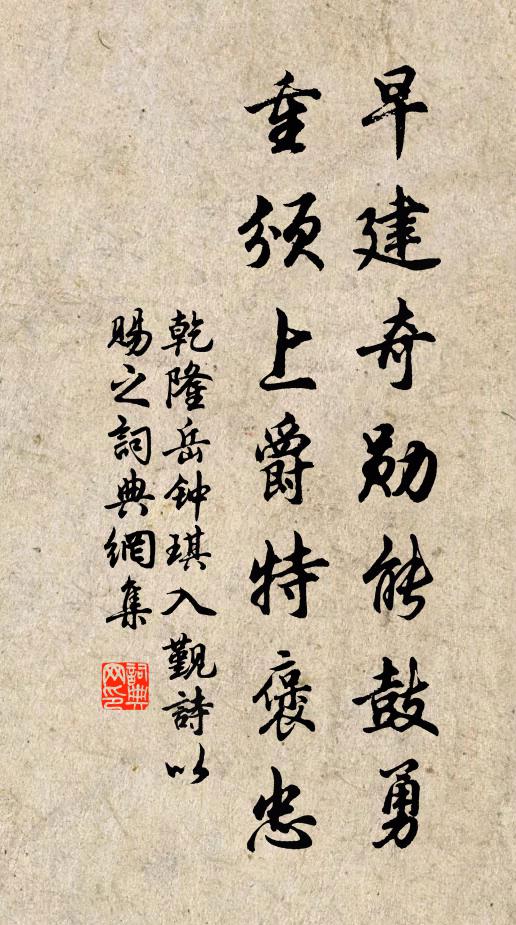 早建奇勋能鼓勇
重颁上爵特褒忠
乾隆岳钟琪入觐詩以
賜之詞典網集
詞典
网印